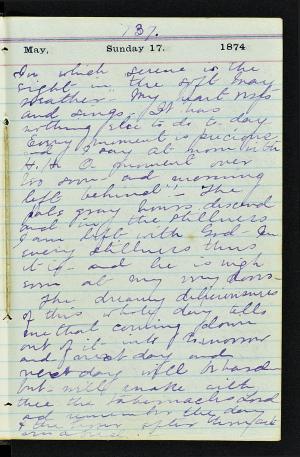 137.
May, Sunday 17. 1874
In which serene is the
night in the soft May
weather. My heart rests
and sings. It has
nothing else to do to day
Every moment is precious
I say at noon with
H. H. "A moment over
his and morning
left behind" - The
pale gray hours descend
and in the stillness
I am left with God - In
every stillness thus
it is - and he is nigh
at my very door
The dreamy deliciousness
of this whole day tells
me that coming down
out of it into to morrow
and next day and
next day will be harder
but will make with
thee the tabernacles Lord
and remember the day
& the hour after